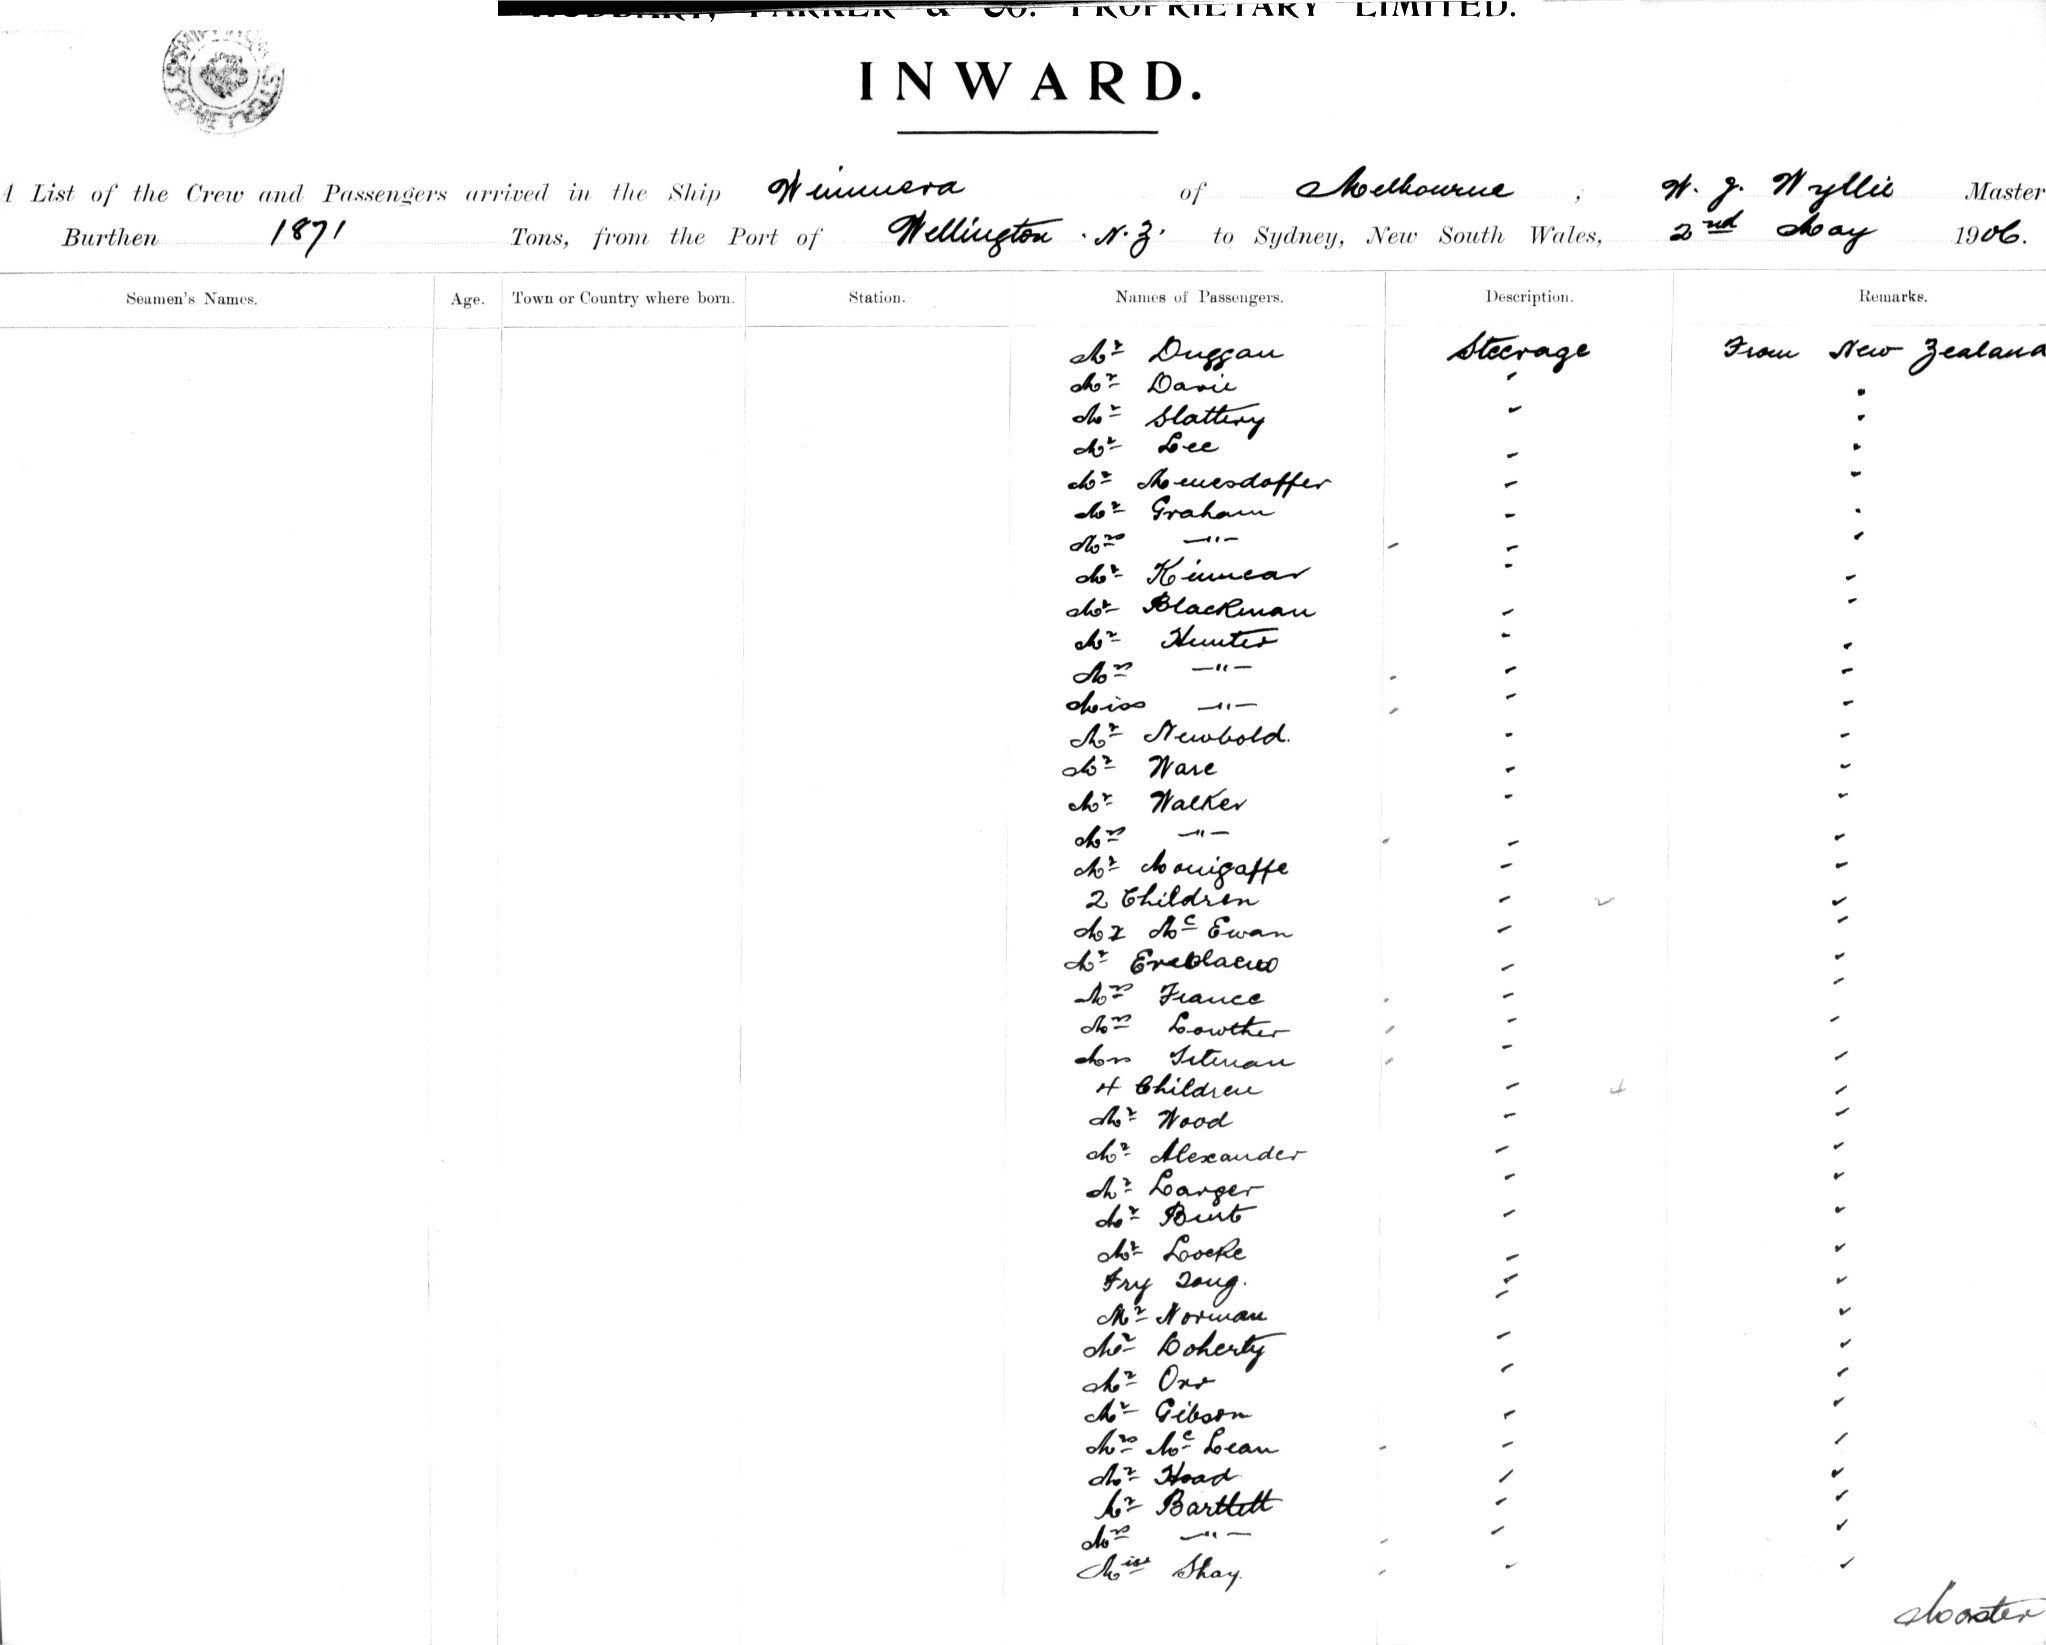 HUDDART, PARKER & CO. PROPRIETARY LIMITED.
INWARD.
A List of the Crew and Passengers arrived in the Ship Wimmera of Melbourne, W. J. Wyllie Master
Burthen 1871 Tons, from the Port of Wellington N.Z. to Sydney, New South Wales, 2nd May 1906.
Seamen's Names. Age. Town or Country where born. Station. Names of Passengers. Description. Remarks.
Mr Duggan Steerage From New Zealand
Mr Davie " "
Mr Slattery " "
Mr Lee " "
Mr " "
Mr Graham " "
Mrs —"— " "
Mr Kinnear " "
Mr Blackman " "
Mr Hunter " "
Mrs —"— " "
Miss —"— " "
Mr Newbold. " "
Mr Ware " "
Mr Walker " "
Mrs —"— " "
Mr " "
2 Children " "
Mr McEwan " "
Mr " "
Mrs France " "
Mrs Lowther " "
Mrs " "
4 Children " "
Mr Wood " "
Mr Alexander " "
Mr Larger " "
Mr Burt " "
Mr Locke " "
" "
Mr Norman " "
Mr Doherty " "
Mr Orr " "
Mr Gibson " "
Mrs McLean " "
Mr Hoad " "
Mr Bartlett " "
Mrs —"— " "
Miss Shay. " "
Master